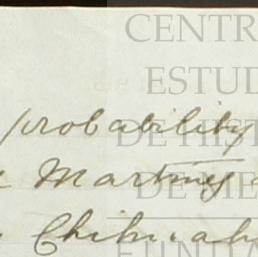 CENTR
ESTUD
probability
DE HIST
Martinez
DE ME
Chihuah
FUNDA